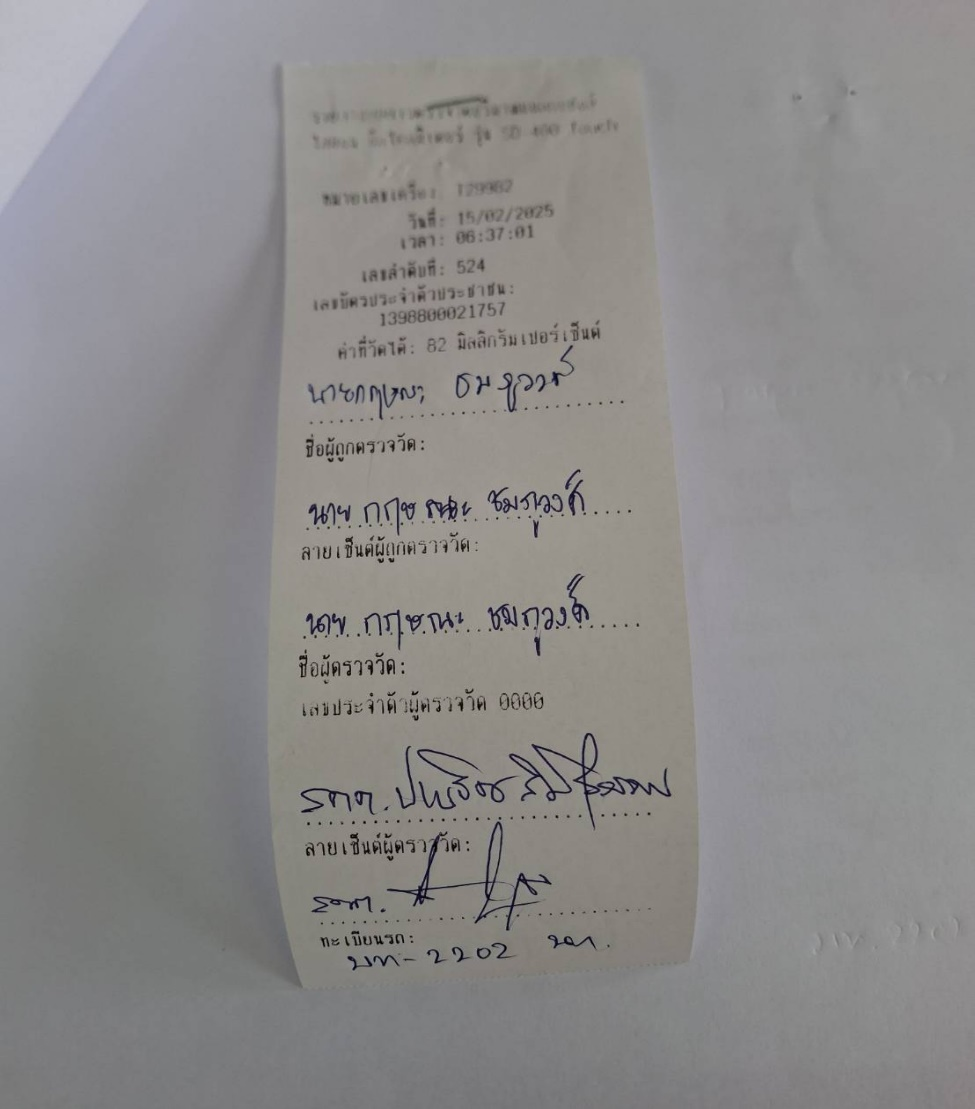 รุ่น SD-400 Touch
หมายเลขเครื่อง: 129982
วันที่: 15/02/2025
เวลา: 06:37:01
เลขลำดับที่: 524
เลขบัตรประจำตัวประชาชน:
1398800021757
ค่าที่วัดได้: 82 มิลลิกรัมเปอร์เซ็นต์
นายกฤษณะ ชมภูวงศ์
ชื่อผู้ถูกตรวจวัด:
นาย กฤษณะ ชมภูวงศ์
ลายเซ็นต์ผู้ถูกตรวจวัด:
นาย กฤษณะ ชมภูวงศ์
ชื่อผู้ตรวจวัด:
เลขประจำตัวผู้ตรวจวัด 0000
ลายเซ็นต์ผู้ตรวจวัด:
ทะเบียนรถ:
2202